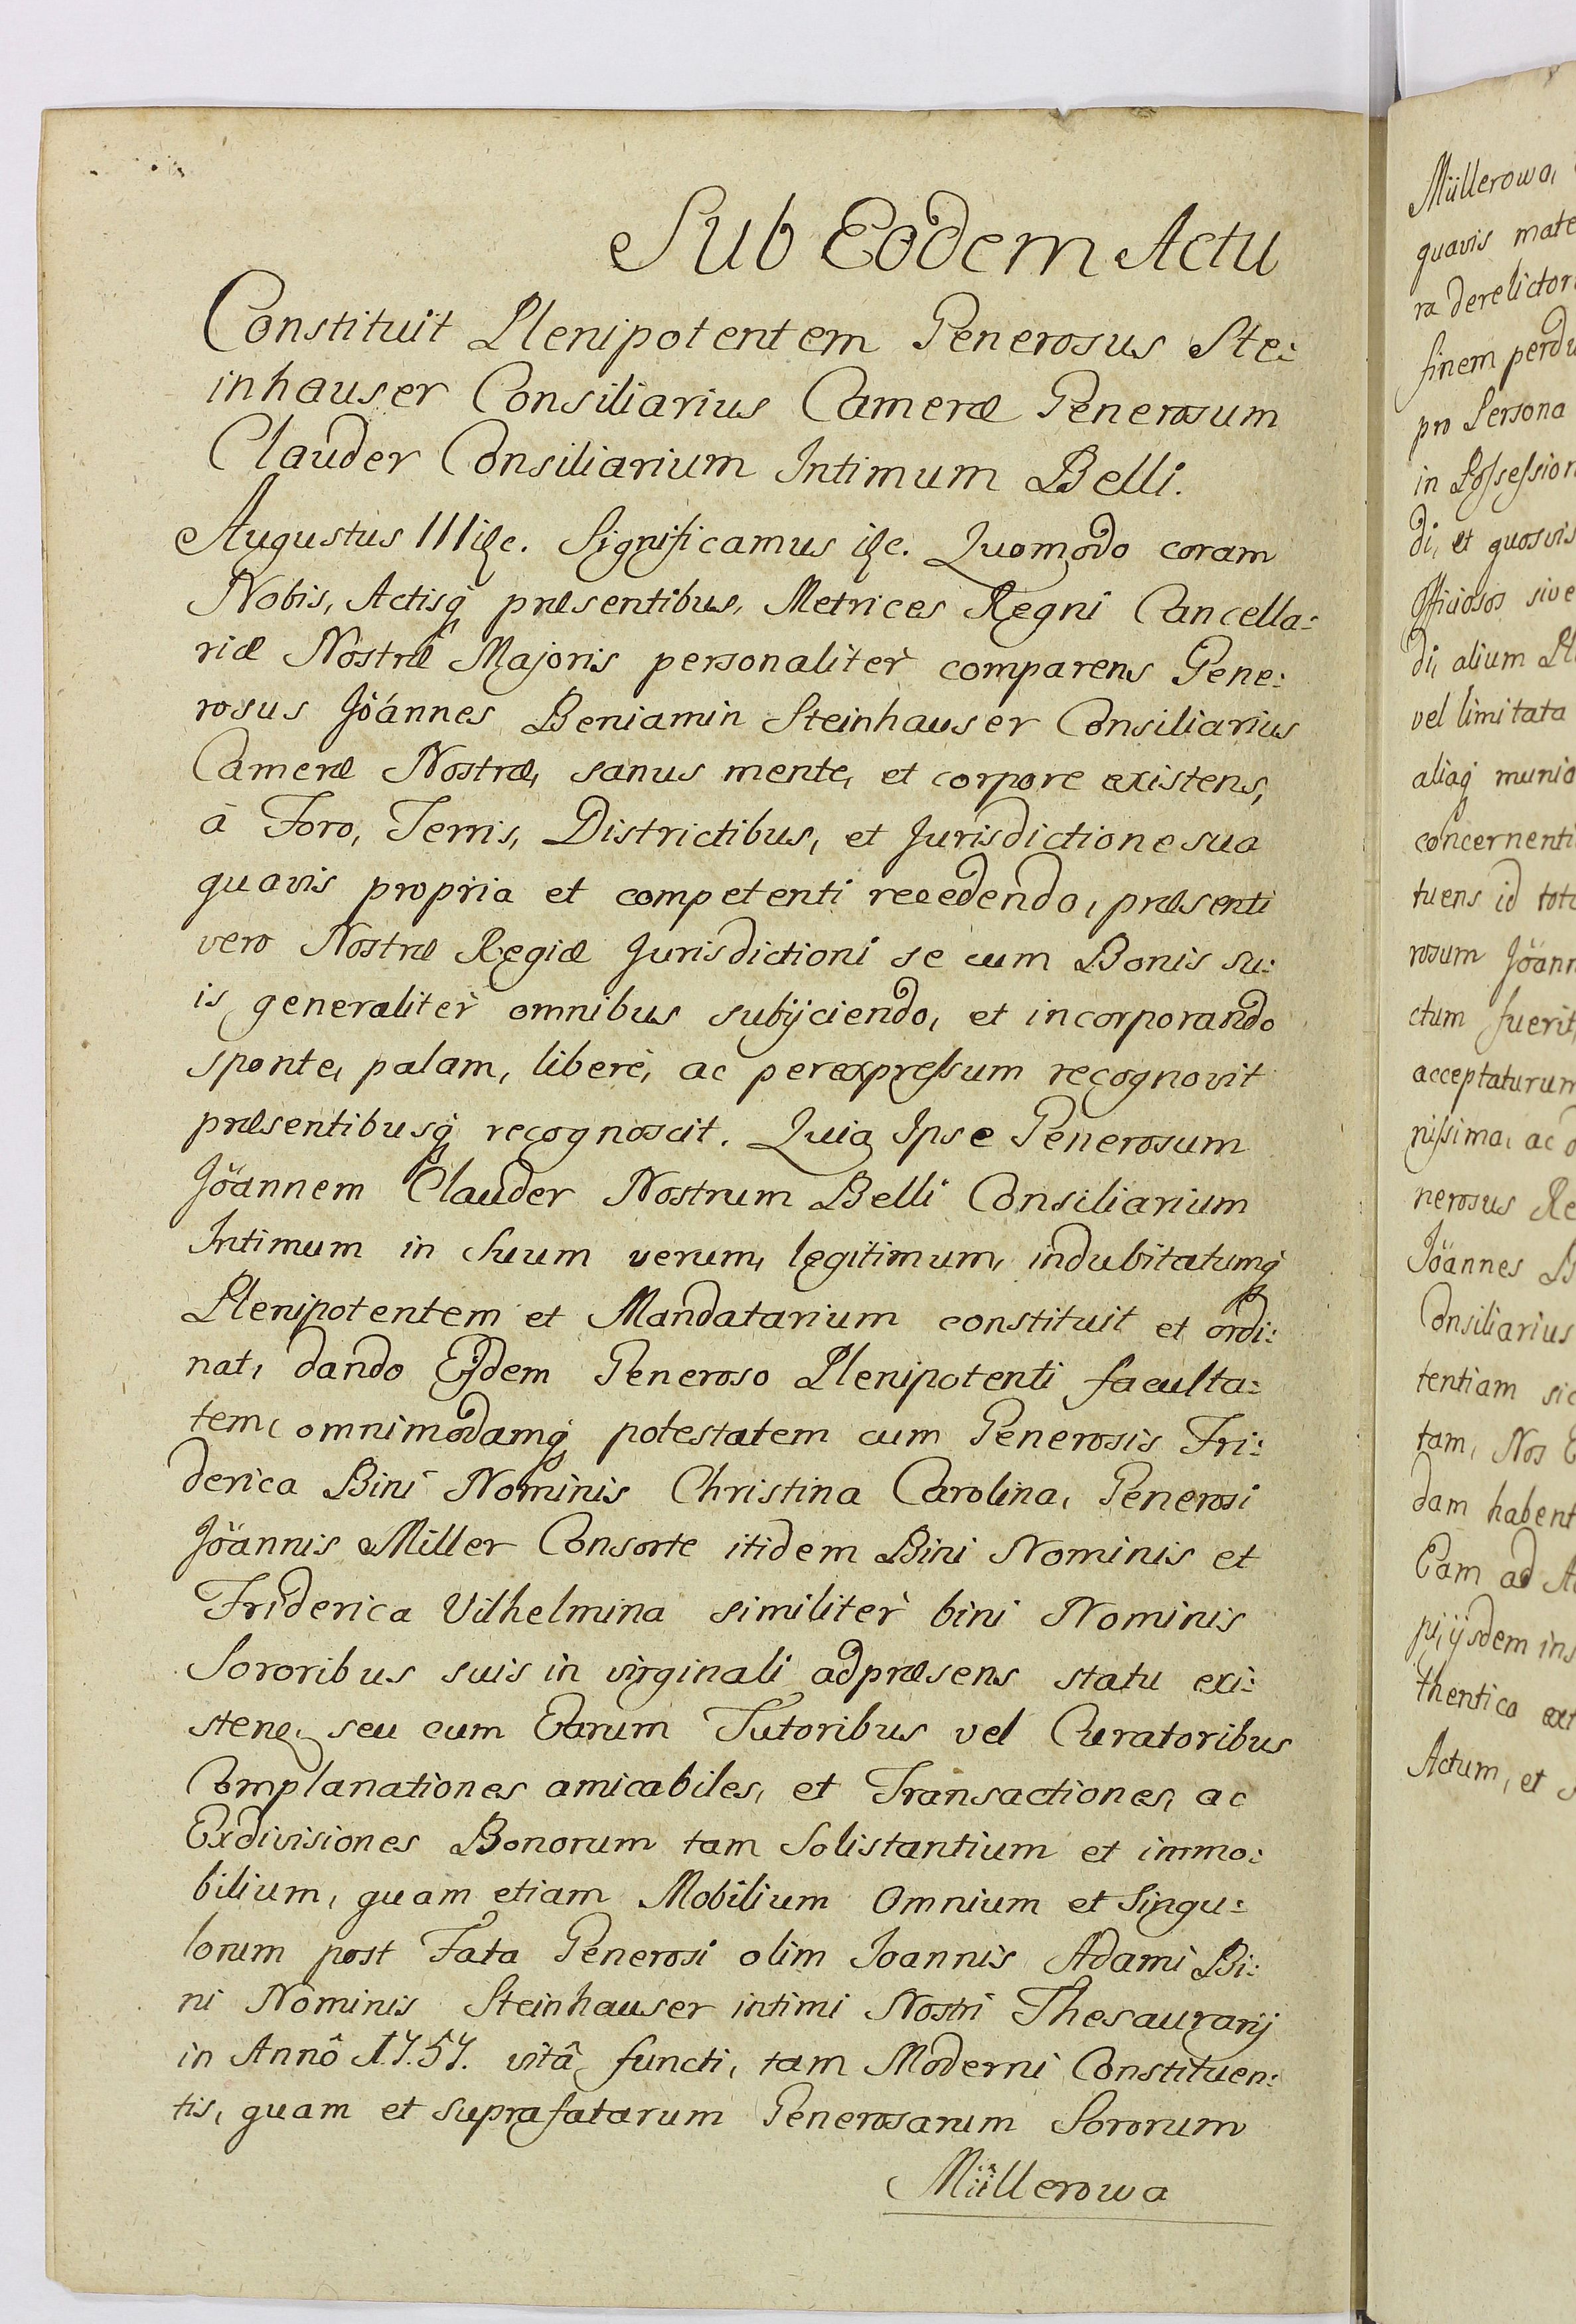 Sub Eodem Actu
Constituit Plenipotentem Generosus Ste:
inhauser Consiliarius Cameræ Generosum
Clauder Consiliarium Intimum Belli.
Augustus III etc. Significamus etc. Quomodo coram
Nobis, Actisq præsentibus, Metrices Regni Cancella:
riæ Nostræ Majoris personaliter comparens Gene:
rosus Joännes Beniamin Steinhauser Consiliarius
Cameræ Nostræ, sanus mente, et corpore existens,
à Foro, Terris, Districtibus, et Jurisdictione sua
quavis propria et competenti recedendo, præsenti
vero Nostræ Regiæ Jurisdictioni se cum Bonis su:
is generaliter omnibus subijciendo, et incorporando
sponte, palam, liberè, ac per expressum recognovit
præsentibusq recognoscit. Quia Ipse Generosum
Joännem Clauder Nostrum Belli Consiliarium
Intimum in Suum verum, legitimum, indubitatumq
Plenipotentem et Mandatarium constituit et ordi:
nat, dando Ejdem Generoso Plenipotenti faculta:
tem, omnimodamq potestatem cum Generosis Fri:
derica Bini Nominis Christina Carolina, Generosi
Joännis Miller Consorte itidem Bini Nominis et
Friderica Vilhelmina similiter bini Nominis
Sororibus suis in virginali adpræsens statu exi:
sten, seu cum Earum Tutoribus vel Curatoribus
Complanationes amicabiles, et Transactiones, ac
Exdivisiones Bonorum tam Solistantium et immo:
bilium, quam etiam Mobilium Omnium et Singu:
lorum post Fata Generosi olim Ioannis Adami Bi:
ni Nominis Steinhauser intimi Nostri Thesaurarij
in Annô 1757. vitâ functi, tam Moderni Constituen:
tis, quam et suprafatarum Generosarum Sororum
Müllerowa
Müllerowa,
quavis mate
ra derelictor
finem perdu
pro Persona
in Possession
di, et quosvis
Officiosos sive
di, alium Pl
vel limitata
aliaq munia
concernenti
tuens id toto
rosum Joänn
ctum fuerit,
acceptaturum
nissima, ac
nerosus Re
Joännes B
Consiliarius
tentiam sic
tam, Nos
dam habent
Eam ad A
pi, ijsdem ins
thentico ext
Actum, et